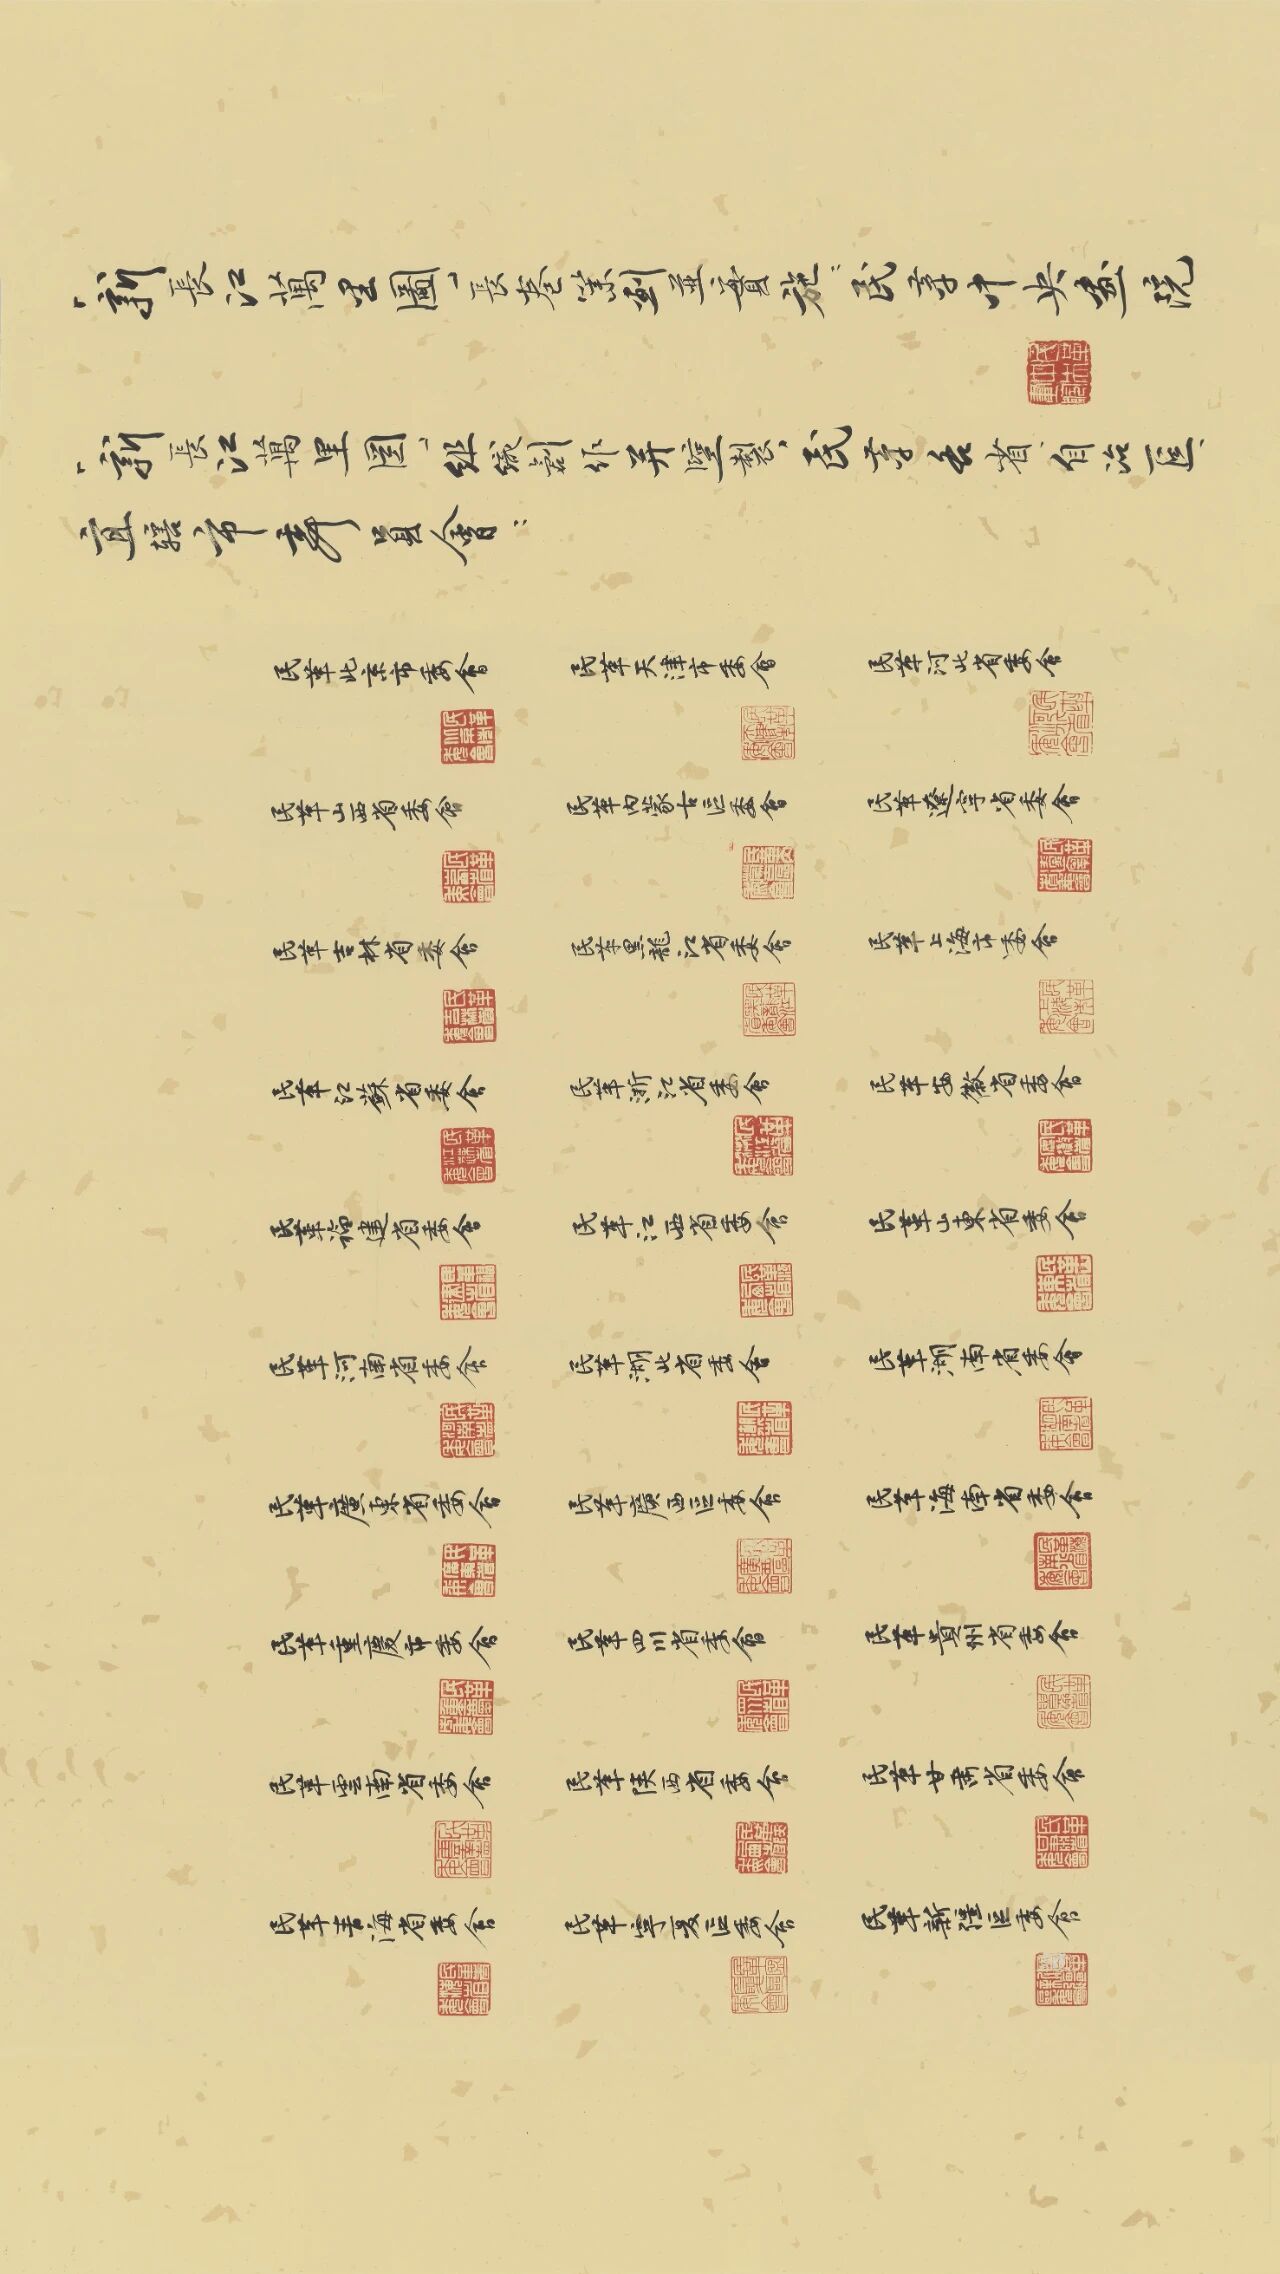 「新長江萬里圖」長卷策劃並實施：民革中央畫院
「新長江萬里图」組織創作并監製：民革各省、自治區、
直辖市委員會：
民革北京市委會 民革天津市委會 民革河北省委会
民革山西省委會 民革內蒙古區委會 民革遼寧省委会
民革吉林省委会 民革黑龍江省委会 民革上海市委会
民革江蘇省委会 民革浙江省委会 民革安徽省委会
民革福建省委会 民革江西省委会 民革山東省委会
民革河南省委会 民革湖北省委会 民革湖南省委会
民革廣東省委会 民革廣西區委会 民革海南省委会
民革重慶市委会 民革四川省委會 民革貴州省委会
民革雲南省委会 民革陕西省委会 民革甘肅省委会
民革青海省委会 民革寧夏區委会 民革新疆區委会